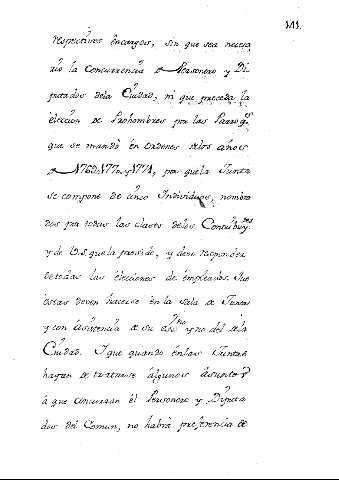 141.
respectivos encargos, sin que sea necesa
rio la concurrencia de Personero y Di
putados dela Ciudad, ni que preceda la
eleccion de Prohombres por las Parroqs.
que se mandó en ordenes delos años
de 1760, 1770, y 1771, por que la Junta
se compone de cinco Individuos, nombra
dos por todas las clases delos Contribuytes
y de V.S. que la preside, y deve responder
de todas las elecciones de empleados. Que
estas deven hacerse en la sala de Juntas
y con asistencia de su essno y no del dela
Ciudad. Y que quando en las Juntas
hayan de tratarse algunos asuntos
à que concurran el Personero y Diputa
dos del Comun, no habrà preferencia de